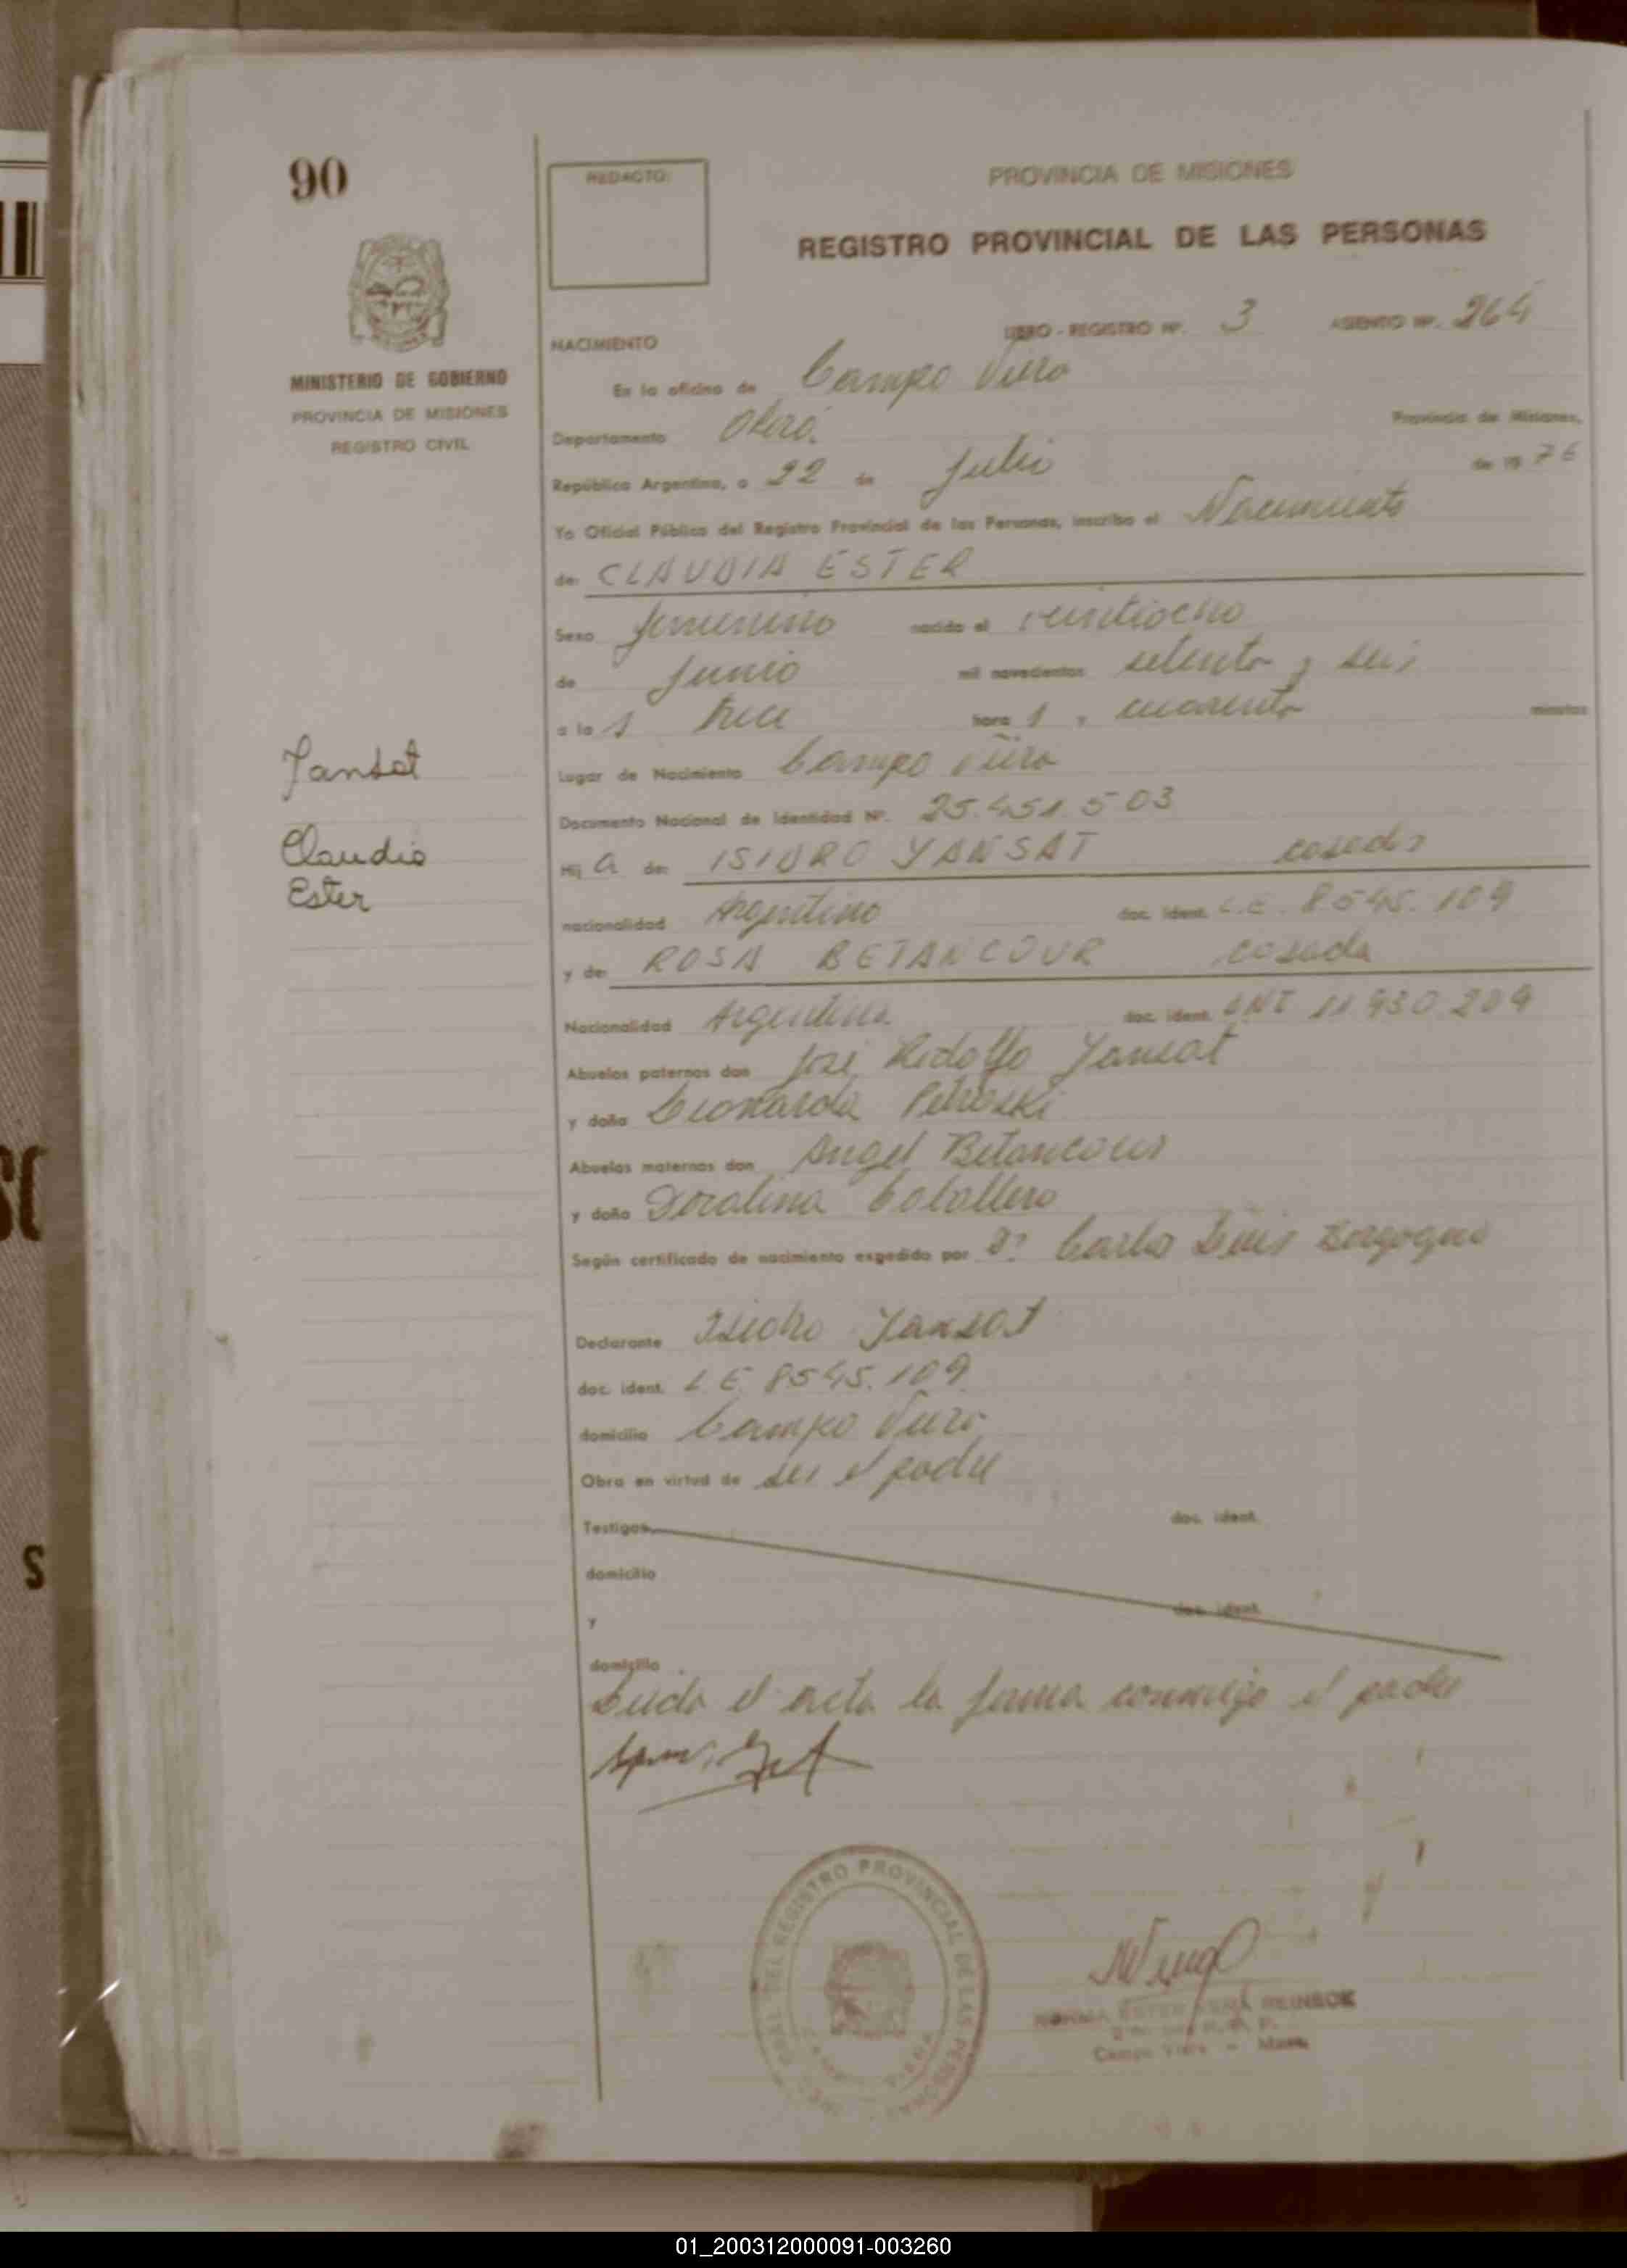 90
REDACTO:
PROVINCIA DE MISIONES
REGISTRO PROVINCIAL DE LAS PERSONAS
MINISTERIO DE GOBIERNO
PROVINCIA DE MISIONES
REGISTRO CIVIL
LIBRO - REGISTRO Nº. 3 ASIENTO Nº. 264
NACIMIENTO
En la oficina de Campo Viera
Departamento Oberá. Provincia de Misiones,
República Argentina, a 22 de Julio de 19 76
Yo Oficial Público del Registro Provincial de las Personas, inscribo el Nacimiento
de: CLAUDIA ESTER
Sexo femenino nacido el veintiocho
de Junio mil novecientos setenta y seis
a la s trece hora s, cuarenta minutos
Lugar de Nacimiento Campo Viera
Documento Nacional de Identidad Nº. 25.451.503
Yansat
Claudia
Ester
Hij a de: ISIDRO YANSAT casado
nacionalidad Argentino doc. ident. L.E. 8545.109
y de: ROSA BETANCOUR casada
Nacionalidad Argentina doc. ident. DNI 11 930 209
Abuelos paternos don José Yansat
y doña Leonarda Petroski
Abuelos maternos don Angel Betancour
y doña Doralina Caballero
Según certificado de nacimiento expedido por Dr Carlos Luis
Declarante Isidro Yansat
doc. ident. L.E. 8545.109
domicilio Campo Viera
Obra en virtud de ser el padre
Testigos doc. ident.
domicilio
y doc. ident.
domicilio
Leida el acta la firma conmigo el padre
DEL REGISTRO PROVINCIAL DE LAS PERSONAS
NORMA ESTER VERA REINBOK
Campo Viera - Mnes.
01_200312000091-003260